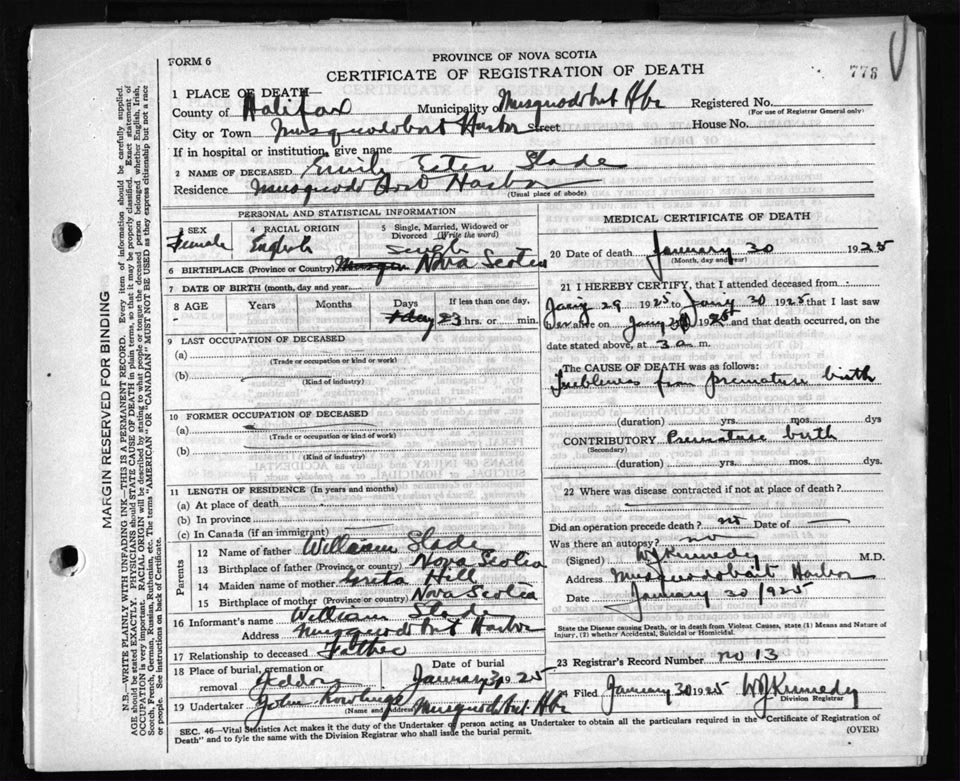 FORM 6
PROVINCE OF NOVA SCOTIA
CERTIFICATE OF REGISTRATION OF DEATH
778
1 PLACE OF DEATH—
County of Halifax Municipality of Musquodobit Hbr Registered No.
(For use of Registrar General only)
City or Town Musquodoboit Harbor Street House No.
If in hospital or institution, give name
2 NAME OF DECEASED Emily Ester Slade
Residence Musquodoboit Harbor
(Usual place of abode)
PERSONAL AND STATISTICAL INFORMATION
3 SEX
Female
4 RACIAL ORIGIN
English
5 Single, Married, Widowed or Divorced (Write the word)
Single
6 BIRTHPLACE (Province or Country) Nova Scotia
7 DATE OF BIRTH (month, day and year)
8 AGE Years Months Days If less than one day,
1 day 23 hrs. or min.
9 LAST OCCUPATION OF DECEASED
(a)
(Trade or occupation or kind of work)
(b)
(Kind of industry)
10 FORMER OCCUPATION OF DECEASED
(a)
(Trade or occupation or kind of work)
(b)
(Kind of industry)
11 LENGTH OF RESIDENCE (In years and months)
(a) At place of death
(b) In province
(c) In Canada (if an immigrant)
Parents
12 Name of father William Slade
13 Birthplace of father (Province or country) Nova Scotia
14 Maiden name of mother Greta Hill
15 Birthplace of mother (Province or country) Nova Scotia
16 Informant's name William Slade
Address Musquodobit Harbor
17 Relationship to deceased Father
18 Place of burial, cremation or removal Jeddore
Date of burial January 31 1925
19 Undertaker John Musquodobit Hbr
(Name and Address)
MEDICAL CERTIFICATE OF DEATH
20 Date of death January 30 1925
(Month, day and year)
21 I HEREBY CERTIFY, that I attended deceased from
Jany 29 1925 to Jany 30 1925 that I last saw
her alive on Jany 30 1925 and that death occurred, on the
date stated above, at 3 a m.
The CAUSE OF DEATH was as follows:
from premature birth
(duration) yrs. mos. dys
CONTRIBUTORY Premature birth
(Secondary)
(duration) yrs. mos. dys.
22 Where was disease contracted if not at place of death?
Did an operation precede death? no Date of —
Was there an autopsy? no
(Signed) WJ Kennedy M.D.
Address Musquodoboit Harbor
Date January 30 1925
State the Disease causing Death, or in death from Violent Causes, state (1) Means and Nature of Injury, (2) whether Accidental, Suicidal or Homicidal.
23 Registrar's Record Number no 13
24 Filed January 30 1925 WJ Kennedy
Division Registrar
SEC. 46—Vital Statistics Act makes it the duty of the Undertaker or person acting as Undertaker to obtain all the particulars required in the "Certificate of Registration of
Death" and to fyle the same with the Division Registrar who shall issue the burial permit.
(OVER)
MARGIN RESERVED FOR BINDING
N.B.—WRITE PLAINLY WITH UNFADING INK—THIS IS A PERMANENT RECORD. Every item of information should be carefully supplied.
AGE should be stated EXACTLY. PHYSICIANS should STATE CAUSE OF DEATH in plain terms, so that it may be properly classified. Exact statement of
OCCUPATION is very important. RACIAL ORIGIN will be described by stating to what people or tongue the deceased person belonged whether English, Irish,
Scotch, French, German, Russian, Ruthenian, etc. The terms "AMERICAN" OR "CANADIAN" MUST NOT BE USED as they express citizenship but not a race
or people. See instructions on back of Certificate.